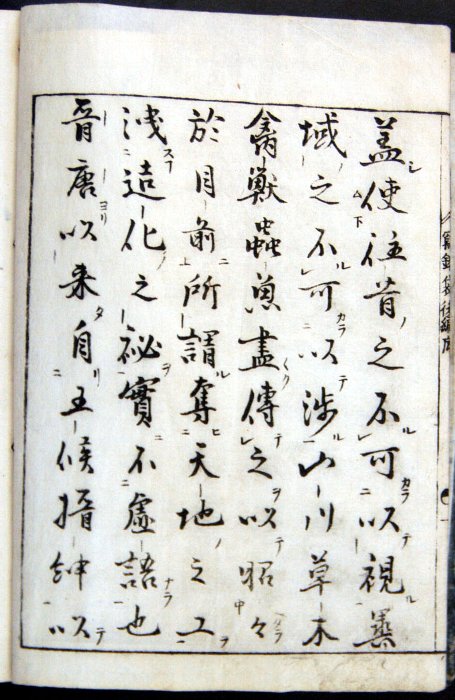 蓋使往昔之不可以視異
域之不可以渉山川草木
禽獣蟲魚盡傳之以昭々
於目前所謂奪天地之工
洩造化之秘實不虚語也
晋唐以来自王侯搢紳以